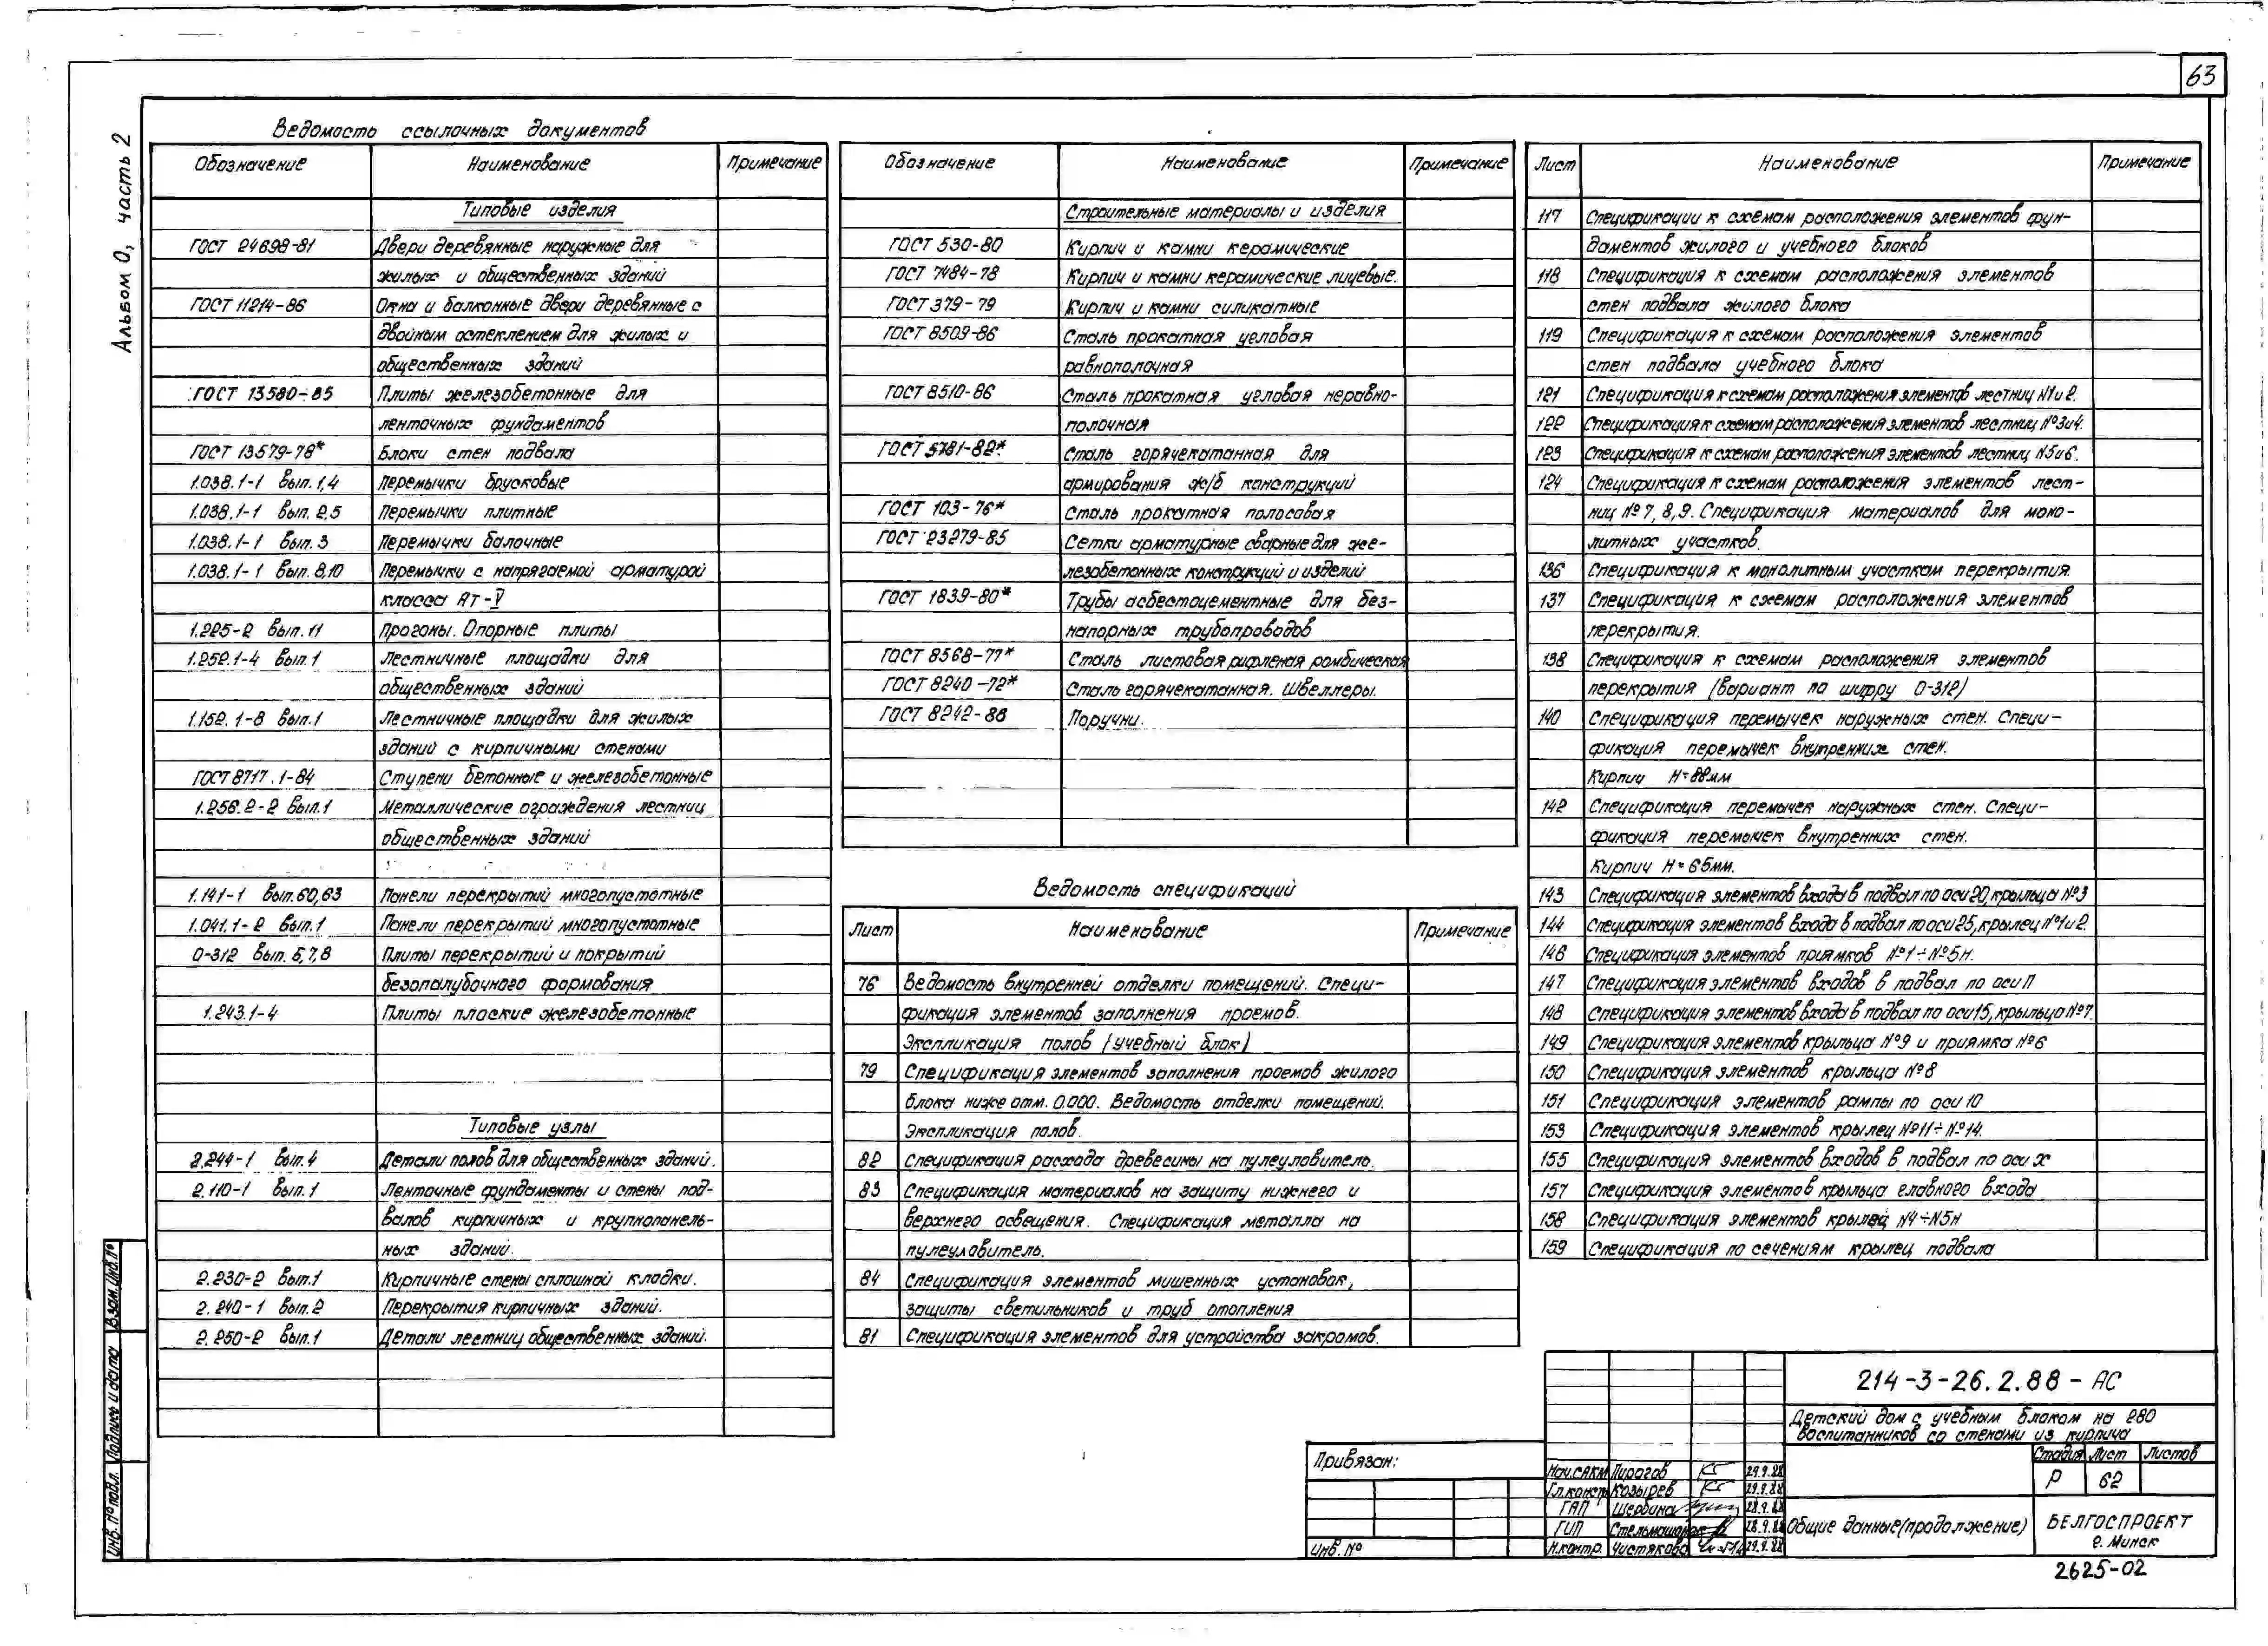 63
Альбом 0, часть 2
Ведомость ссылочных документов
Обозначение Наименование Примечание
Типовые изделия
ГОСТ 24698-81 Двери деревянные наружные для
жилых и общественных зданий
ГОСТ 11214-86 Окна и балконные двери деревянные с
двойным остеклением для жилых и
общественных зданий
ГОСТ 13580-85 Плиты железобетонные для
ленточных фундаментов
ГОСТ 13579-78* Блоки стен подвала
1.038.1-1 вып. 1,4 Перемычки брусковые
1.038.1-1 вып. 2,5 Перемычки плитные
1.038.1-1 вып. 3 Перемычки балочные
1.038.1-1 вып. 8,10 Перемычки с напрягаемой арматурой
класса Ат-V
1.225-2 вып. 11 Прогоны. Опорные плиты
1.252.1-4 вып. 1 Лестничные площадки для
общественных зданий
1.152.1-8 вып. 1 Лестничные площадки для жилых
зданий с кирпичными стенами
ГОСТ 8717.1-84 Ступени бетонные и железобетонные
1.256.2-2 вып. 1 Металлические ограждения лестниц
общественных зданий
1.141-1 вып. 60,63 Панели перекрытий многопустотные
1.041.1-2 вып. 1 Панели перекрытий многопустотные
0-312 вып. 5,7,8 Плиты перекрытий и покрытий
безопалубочного формования
1.243.1-4 Плиты плоские железобетонные
Типовые узлы
2.244-1 вып. 4 Детали полов для общественных зданий.
2.110-1 вып. 1 Ленточные фундаменты и стены под-
валов кирпичных и крупнопанель-
ных зданий.
2.230-2 вып. 1 Кирпичные стены сплошной кладки.
2.240-1 вып. 2 Перекрытия кирпичных зданий.
2.250-2 вып. 1 Детали лестниц общественных зданий.
Обозначение Наименование Примечание
Строительные материалы и изделия
ГОСТ 530-80 Кирпич и камни керамические
ГОСТ 7484-78 Кирпич и камни керамические лицевые.
ГОСТ 379-79 Кирпич и камни силикатные
ГОСТ 8509-86 Сталь прокатная угловая
равнополочная
ГОСТ 8510-86 Сталь прокатная угловая неравно-
полочная
ГОСТ 5781-82* Сталь горячекатанная для
армирования ж/б конструкций
ГОСТ 103-76* Сталь прокатная полосовая
ГОСТ 23279-85 Сетки арматурные сварные для же-
лезобетонных конструкций и изделий
ГОСТ 1839-80* Трубы асбестоцементные для без-
напорных трубопроводов
ГОСТ 8568-77* Сталь листовая рифленая ромбическая
ГОСТ 8240-72* Сталь горячекатанная. Швеллеры.
ГОСТ 8242-88 Поручни.
Ведомость спецификаций
Лист Наименование Примечание
76 Ведомость внутренней отделки помещений. Специ-
фикация элементов заполнения проемов.
Экспликация полов (учебный блок)
79 Спецификация элементов заполнения проемов жилого
блока ниже отм. 0.000. Ведомость отделки помещений.
Экспликация полов.
82 Спецификация расхода древесины на пулеуловитель.
83 Спецификация материалов на защиту нижнего и
верхнего освещения. Спецификация металла на
пулеуловитель.
84 Спецификация элементов мишенных установок,
защиты светильников и труб отопления
81 Спецификация элементов для устройства закромов.
Лист Наименование Примечание
117 Спецификации к схемам расположения элементов фун-
даментов жилого и учебного блоков
118 Спецификация к схемам расположения элементов
стен подвала жилого блока
119 Спецификация к схемам расположения элементов
стен подвала учебного блока
121 Спецификация к схемам расположения элементов лестниц N1и2.
122 Спецификация к схемам расположения элементов лестниц №3и4.
123 Спецификация к схемам расположения элементов лестниц N5и6.
124 Спецификация к схемам расположения элементов лест-
ниц № 7, 8, 9. Спецификация материалов для моно-
литных участков.
136 Спецификация к монолитным участкам перекрытия.
137 Спецификация к схемам расположения элементов
перекрытия.
138 Спецификация к схемам расположения элементов
перекрытия (вариант по шифру 0-312)
140 Спецификация перемычек наружных стен. Специ-
фикация перемычек внутренних стен.
Кирпич H=88мм
142 Спецификация перемычек наружных стен. Специ-
фикация перемычек внутренних стен.
Кирпич H=65мм.
143 Спецификация элементов входа в подвал по оси 20, крыльца №3
144 Спецификация элементов входа в подвал по оси 25, крылец №1и2.
146 Спецификация элементов приямков №1÷№5н.
147 Спецификация элементов входов в подвал по оси П
148 Спецификация элементов входа в подвал по оси 15, крыльца №7.
149 Спецификация элементов крыльца №9 и приямка №6
150 Спецификация элементов крыльца №8
151 Спецификация элементов рампы по оси 10
153 Спецификация элементов крылец №11÷№14.
155 Спецификация элементов входов в подвал по оси Х
157 Спецификация элементов крыльца главного входа
158 Спецификация элементов крылец N4÷N5н
159 Спецификация по сечениям крылец подвала
Взам. инв. №
Подпись и дата
Инв. № подл.
Привязан:
Инв. №
Нач.САКМ Пирогов 29.9.88
Гл.констр Козырев 29.9.88
ГАП Щербина 28.9.88
ГИП 28.9.88
Н.контр. Чистякова 29.9.88
214-3-26.2.88-АС
Детский дом с учебным блоком на 280
воспитанников со стенами из кирпича
Стадия Лист Листов
Р 62
Общие данные (продолжение)
БЕЛГОСПРОЕКТ
г. Минск
2625-02